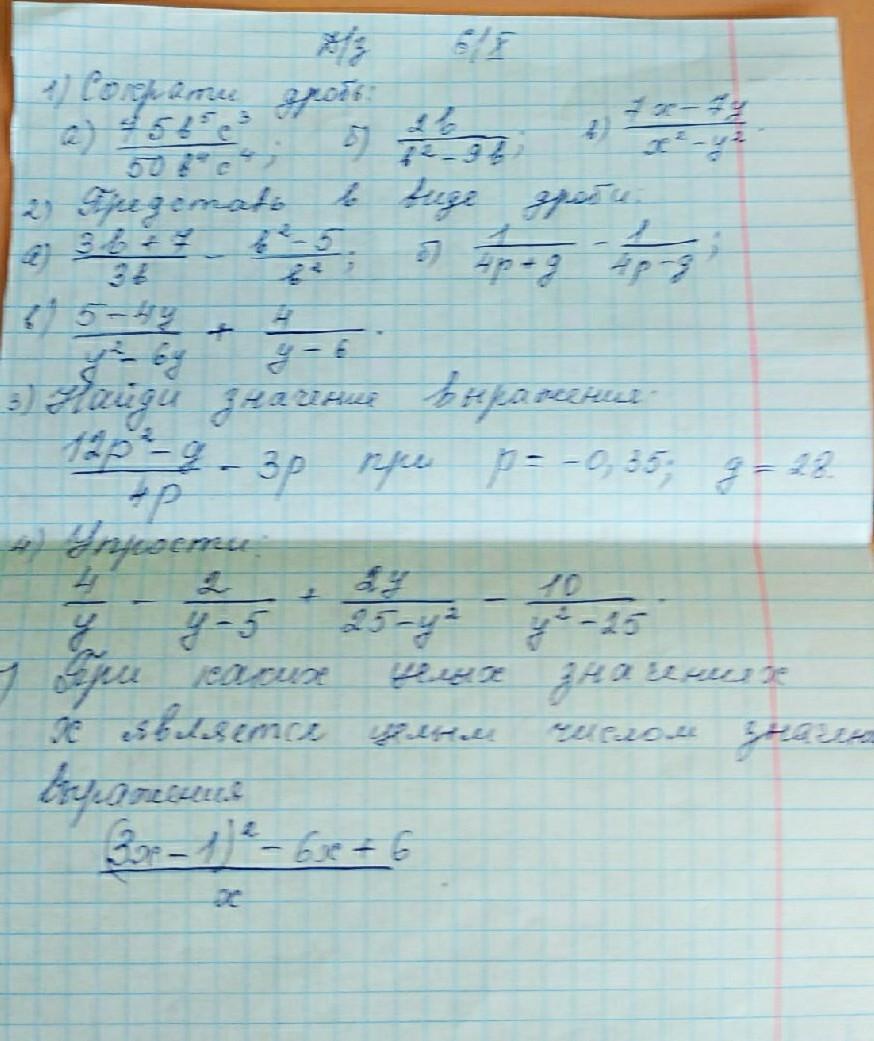 Д/з 6/X
1) Сократи дробь:
а) 75b⁵c³/50b⁴c⁴; б) 2b/b²-9b; в) 7x-7y/x²-y².
2) Представь в виде дроби:
а) 3b+7/3b - b²-5/b²; б) 1/4p+g - 1/4p-g;
в) 5-4y/y²-6y + 4/y-6.
3) Найди значение выражения:
12p²-g/4p - 3p при p = -0,35; g = 28.
4) Упрости:
4/y - 2/y-5 + 2y/25-y² - 10/y²-25.
) При каких целых значениях
x является целым числом значен
выражения
(3x-1)²-6x+6/x